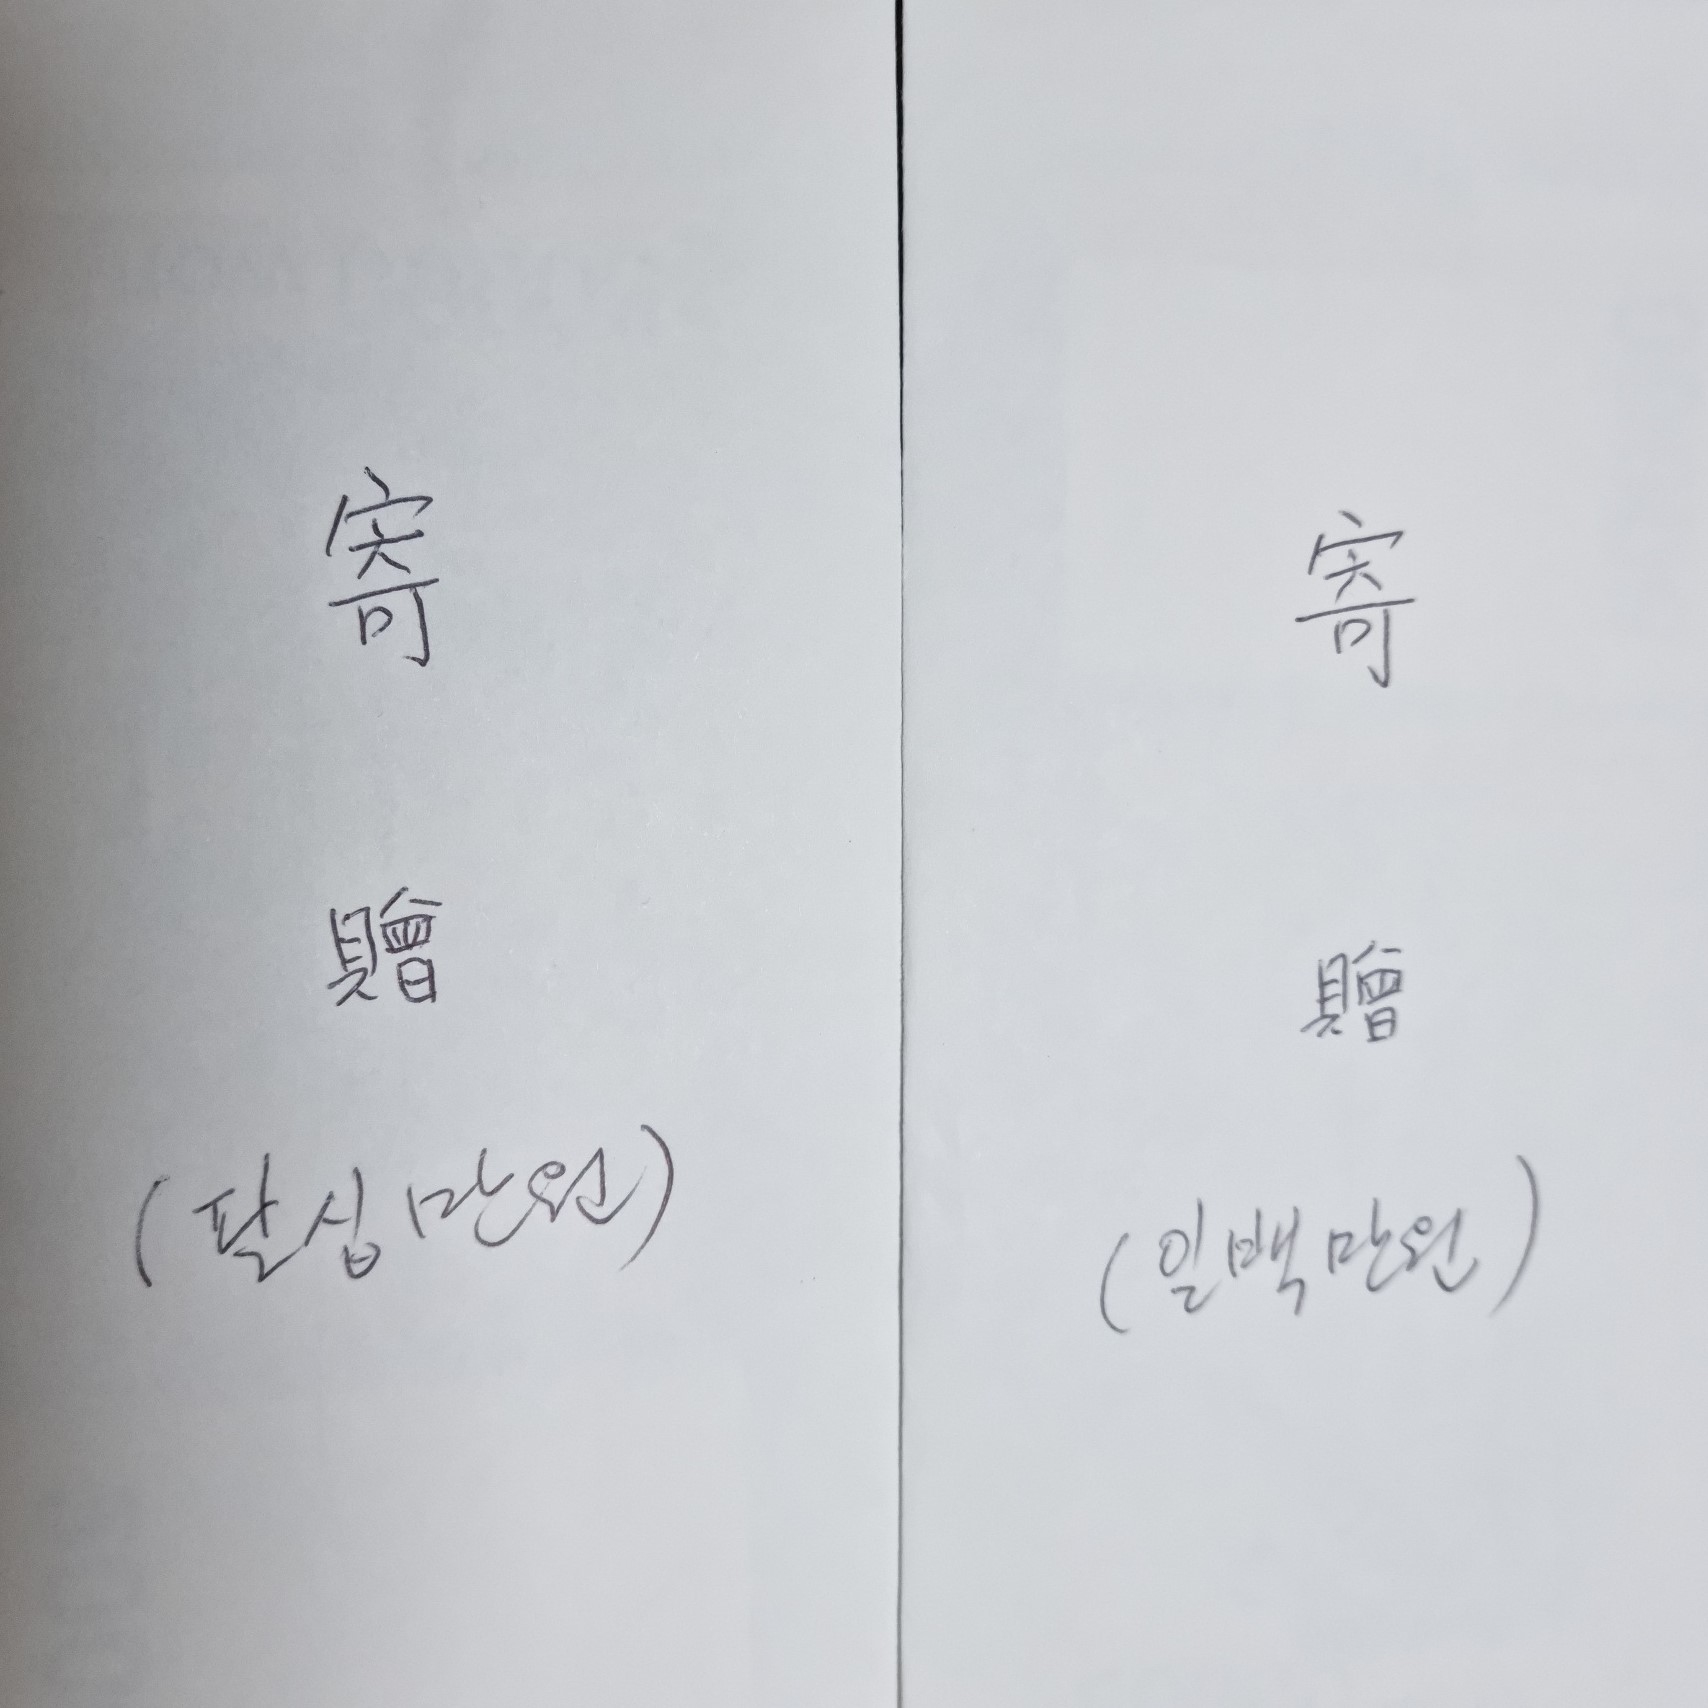 寄
贈
(팔십만원)
寄
贈
(일백만원)